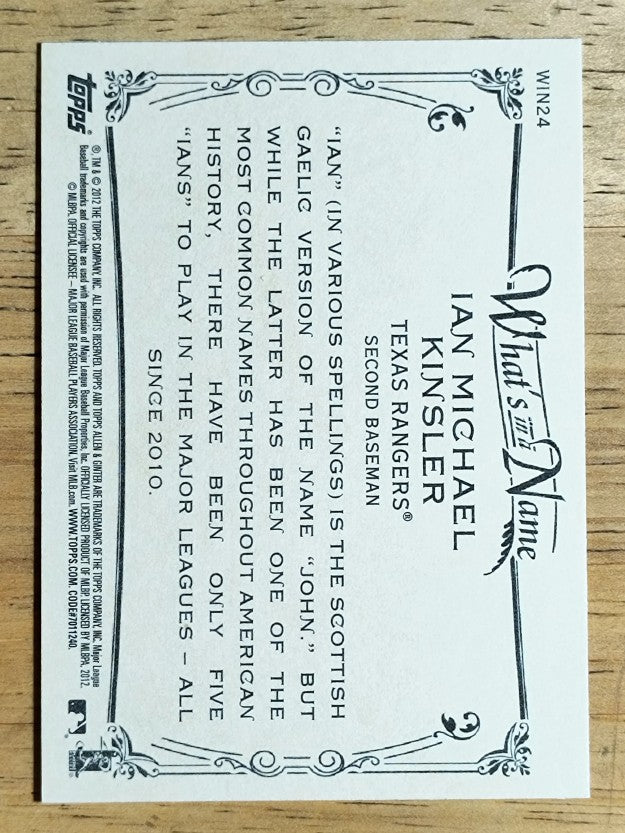 WIN24
What's in a Name
IAN MICHAEL
KINSLER
TEXAS RANGERS®
SECOND BASEMAN
"IAN" (IN VARIOUS SPELLINGS) IS THE SCOTTISH
GAELIC VERSION OF THE NAME "JOHN." BUT
WHILE THE LATTER HAS BEEN ONE OF THE
MOST COMMON NAMES THROUGHOUT AMERICAN
HISTORY, THERE HAVE BEEN ONLY FIVE
"IANS" TO PLAY IN THE MAJOR LEAGUES – ALL
SINCE 2010.
topps®
®, TM & © 2012 THE TOPPS COMPANY, INC. ALL RIGHTS RESERVED. TOPPS AND TOPPS ALLEN & GINTER ARE TRADEMARKS OF THE TOPPS COMPANY, INC. Major League
Baseball trademarks and copyrights are used with permission of Major League Baseball Properties, Inc. OFFICIALLY LICENSED PRODUCT OF MLBP. LICENSED BY MLBPA. 2012.
© MLBPA. OFFICIAL LICENSEE – MAJOR LEAGUE BASEBALL PLAYERS ASSOCIATION. Visit MLB.com. WWW.TOPPS.COM. CODE#7011240.